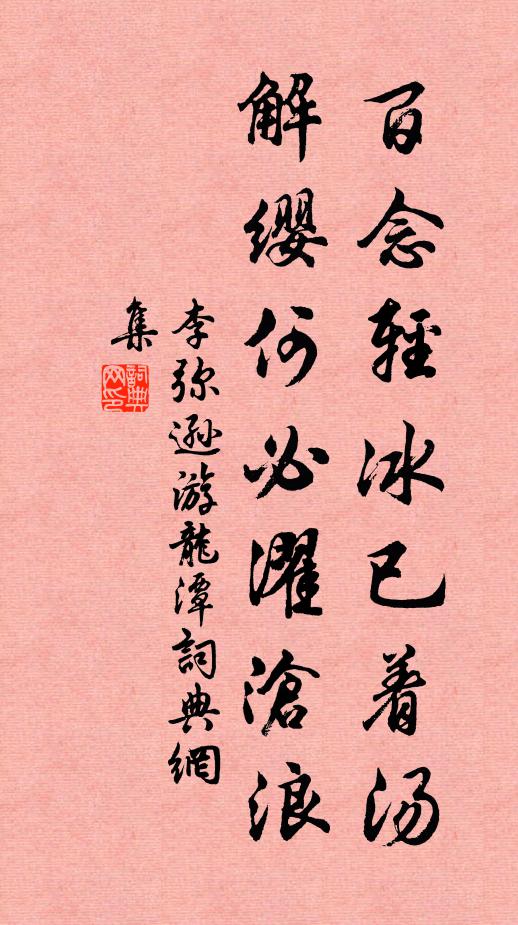 百念輕冰已着汤
解缨何必濯滄浪
李弥逊游龍潭詞典網
集
詞典
网印